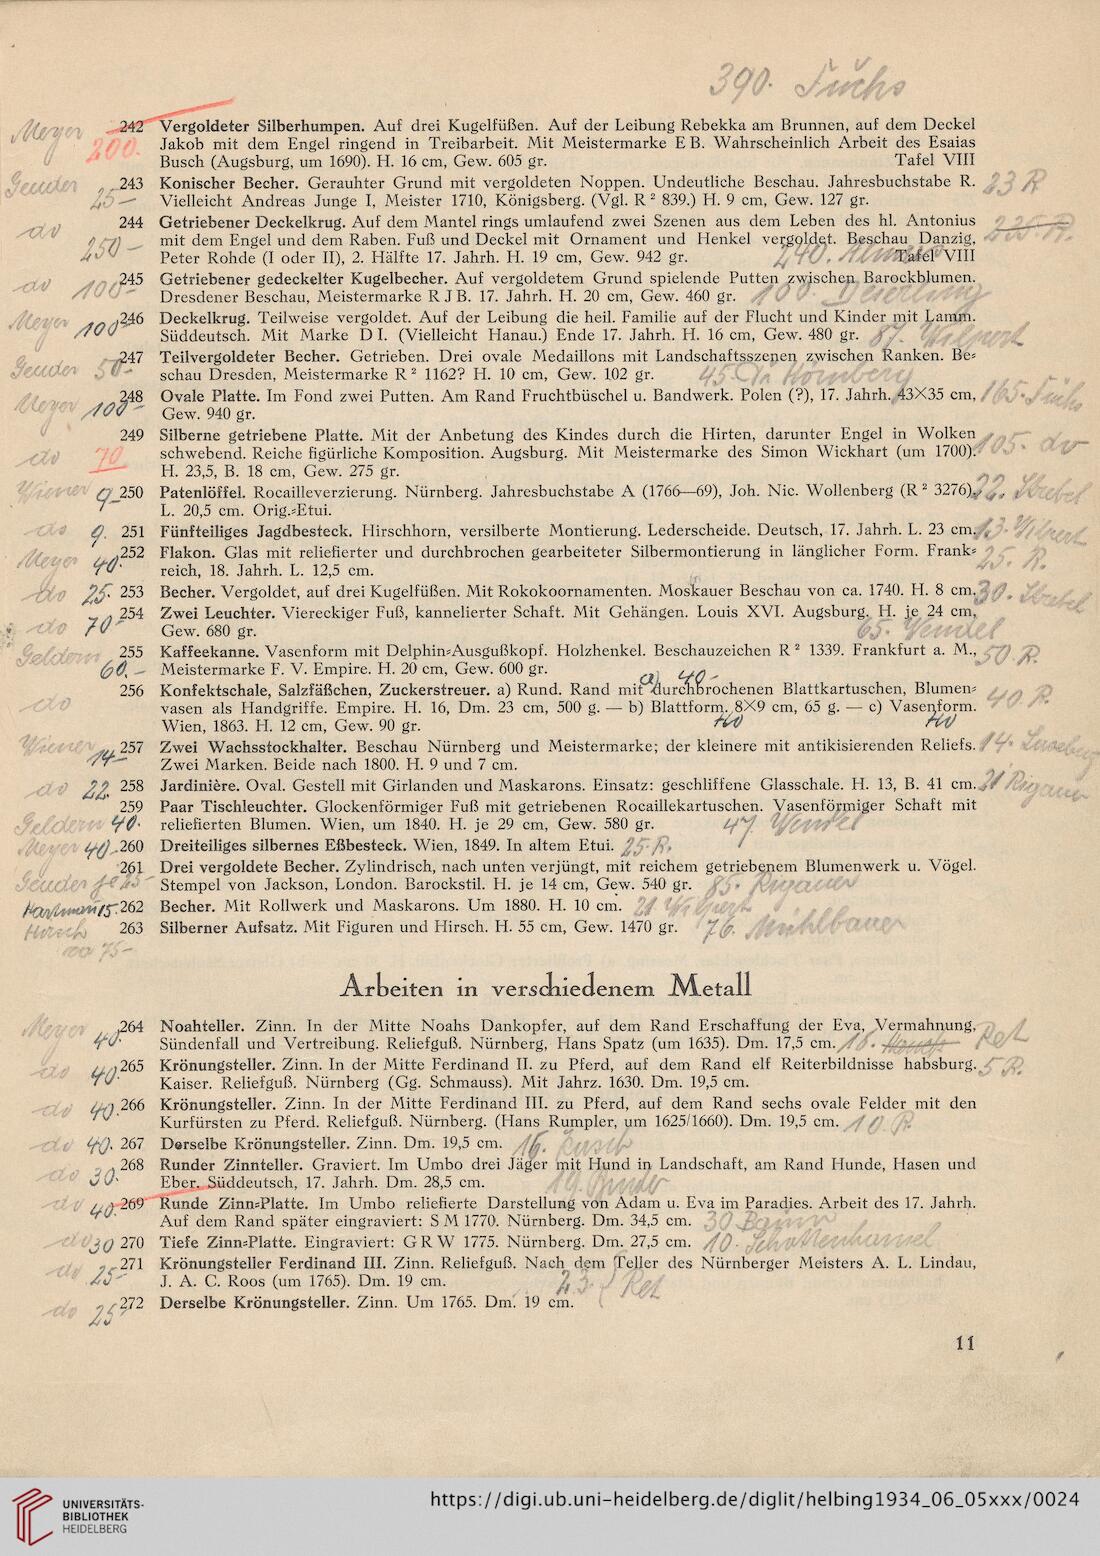 390. Fuchs
Meyer 242 Vergoldeter Silberhumpen. Auf drei Kugelfüßen. Auf der Leibung Rebekka am Brunnen, auf dem Deckel
200. Jakob mit dem Engel ringend in Treibarbeit. Mit Meistermarke E B. Wahrscheinlich Arbeit des Esaias
Busch (Augsburg, um 1690). H. 16 cm, Gew. 605 gr. Tafel VIII
243 Konischer Becher. Gerauhter Grund mit vergoldeten Noppen. Undeutliche Beschau. Jahresbuchstabe R. 23 R
25- Vielleicht Andreas Junge I, Meister 1710, Königsberg. (Vgl. R² 839.) H. 9 cm, Gew. 127 gr.
do 244 Getriebener Deckelkrug. Auf dem Mantel rings umlaufend zwei Szenen aus dem Leben des hl. Antonius 225.R.
250- mit dem Engel und dem Raben. Fuß und Deckel mit Ornament und Henkel vergoldet. Beschau Danzig,
Peter Rohde (I oder II), 2. Hälfte 17. Jahrh. H. 19 cm, Gew. 942 gr. 240. Tafel VIII
do 100- 245 Getriebener gedeckelter Kugelbecher. Auf vergoldetem Grund spielende Putten zwischen Barockblumen.
Dresdener Beschau, Meistermarke R J B. 17. Jahrh. H. 20 cm, Gew. 460 gr.
Meyer 100- 246 Deckelkrug. Teilweise vergoldet. Auf der Leibung die heil. Familie auf der Flucht und Kinder mit Lamm.
Süddeutsch. Mit Marke D I. (Vielleicht Hanau.) Ende 17. Jahrh. H. 16 cm, Gew. 480 gr. 87. Wilpert
50- 247 Teilvergoldeter Becher. Getrieben. Drei ovale Medaillons mit Landschaftsszenen zwischen Ranken. Be-
schau Dresden, Meistermarke R² 1162? H. 10 cm, Gew. 102 gr. 45. Hömberg
Meyer 100- 248 Ovale Platte. Im Fond zwei Putten. Am Rand Fruchtbüschel u. Bandwerk. Polen (?), 17. Jahrh. 43×35 cm, 165. Fuchs
Gew. 940 gr.
249 Silberne getriebene Platte. Mit der Anbetung des Kindes durch die Hirten, darunter Engel in Wolken 105. do
do 70 schwebend. Reiche figürliche Komposition. Augsburg. Mit Meistermarke des Simon Wickhart (um 1700).
H. 23,5, B. 18 cm, Gew. 275 gr.
Wiener 9- 250 Patenlöffel. Rocailleverzierung. Nürnberg. Jahresbuchstabe A (1766—69), Joh. Nic. Wollenberg (R² 3276), 22. Strebel
L. 20,5 cm. Orig.-Etui.
do 9. 251 Fünfteiliges Jagdbesteck. Hirschhorn, versilberte Montierung. Lederscheide. Deutsch, 17. Jahrh. L. 23 cm. 13. Wilpert
Meyer 40. 252 Flakon. Glas mit reliefierter und durchbrochen gearbeiteter Silbermontierung in länglicher Form. Frank-
reich, 18. Jahrh. L. 12,5 cm. 25. R.
do 25. 253 Becher. Vergoldet, auf drei Kugelfüßen. Mit Rokokoornamenten. Moskauer Beschau von ca. 1740. H. 8 cm. 30. Strebel
do 70 254 Zwei Leuchter. Viereckiger Fuß, kannelierter Schaft. Mit Gehängen. Louis XVI. Augsburg. H. je 24 cm,
Gew. 680 gr. 65. Wendel
Geldern 255 Kaffeekanne. Vasenform mit Delphin-Ausgußkopf. Holzhenkel. Beschauzeichen R² 1339. Frankfurt a. M., 50 R.
60.- Meistermarke F. V. Empire. H. 20 cm, Gew. 600 gr.
a) 40-
do 256 Konfektschale, Salzfäßchen, Zuckerstreuer. a) Rund. Rand mit durchbrochenen Blattkartuschen, Blumen- 40 R.
vasen als Handgriffe. Empire. H. 16, Dm. 23 cm, 500 g. — b) Blattform. 8×9 cm, 65 g. — c) Vasenform.
Wien, 1863. H. 12 cm, Gew. 90 gr.
Wiener 14- 257 Zwei Wachsstockhalter. Beschau Nürnberg und Meistermarke; der kleinere mit antikisierenden Reliefs. 14.
Zwei Marken. Beide nach 1800. H. 9 und 7 cm.
do 22. 258 Jardinière. Oval. Gestell mit Girlanden und Maskarons. Einsatz: geschliffene Glasschale. H. 13, B. 41 cm. 21 Rigauer
259 Paar Tischleuchter. Glockenförmiger Fuß mit getriebenen Rocaillekartuschen. Vasenförmiger Schaft mit
Geldern 40. reliefierten Blumen. Wien, um 1840. H. je 29 cm, Gew. 580 gr. 47. Wendel
Meyer 40.- 260 Dreiteiliges silbernes Eßbesteck. Wien, 1849. In altem Etui. 25.R.
261 Drei vergoldete Becher. Zylindrisch, nach unten verjüngt, mit reichem getriebenem Blumenwerk u. Vögel.
je 25- Stempel von Jackson, London. Barockstil. H. je 14 cm, Gew. 540 gr. 85. Rigauer
Hartmann 15. 262 Becher. Mit Rollwerk und Maskarons. Um 1880. H. 10 cm. 21 Wilpert
Hirsch 263 Silberner Aufsatz. Mit Figuren und Hirsch. H. 55 cm, Gew. 1470 gr. 76. Mühlbauer
75-
Arbeiten in verschiedenem Metall
Meyer 40. 264 Noahteller. Zinn. In der Mitte Noahs Dankopfer, auf dem Rand Erschaffung der Eva, Vermahnung, Ret
Sündenfall und Vertreibung. Reliefguß. Nürnberg, Hans Spatz (um 1635). Dm. 17,5 cm. 16.
do 40. 265 Krönungsteller. Zinn. In der Mitte Ferdinand II. zu Pferd, auf dem Rand elf Reiterbildnisse habsburg. 5 R.
Kaiser. Reliefguß. Nürnberg (Gg. Schmauss). Mit Jahrz. 1630. Dm. 19,5 cm.
do 40. 266 Krönungsteller. Zinn. In der Mitte Ferdinand III. zu Pferd, auf dem Rand sechs ovale Felder mit den
Kurfürsten zu Pferd. Reliefguß. Nürnberg. (Hans Rumpler, um 1625/1660). Dm. 19,5 cm. 10 R
do 40. 267 Derselbe Krönungsteller. Zinn. Dm. 19,5 cm. 16.
do 30. 268 Runder Zinnteller. Graviert. Im Umbo drei Jäger mit Hund in Landschaft, am Rand Hunde, Hasen und
Eber. Süddeutsch, 17. Jahrh. Dm. 28,5 cm. 19. Binder
do 40. 269 Runde Zinn-Platte. Im Umbo reliefierte Darstellung von Adam u. Eva im Paradies. Arbeit des 17. Jahrh.
Auf dem Rand später eingraviert: S M 1770. Nürnberg. Dm. 34,5 cm. 30 Baum
do 30 270 Tiefe Zinn-Platte. Eingraviert: G R W 1775. Nürnberg. Dm. 27,5 cm. 10. Schottenhamel
do 25- 271 Krönungsteller Ferdinand III. Zinn. Reliefguß. Nach dem Teller des Nürnberger Meisters A. L. Lindau,
J. A. C. Roos (um 1765). Dm. 19 cm. 23. Ret
do 25- 272 Derselbe Krönungsteller. Zinn. Um 1765. Dm. 19 cm.
11
UNIVERSITÄTS-
BIBLIOTHEK
HEIDELBERG
https://digi.ub.uni-heidelberg.de/diglit/helbing1934_06_05xxx/0024